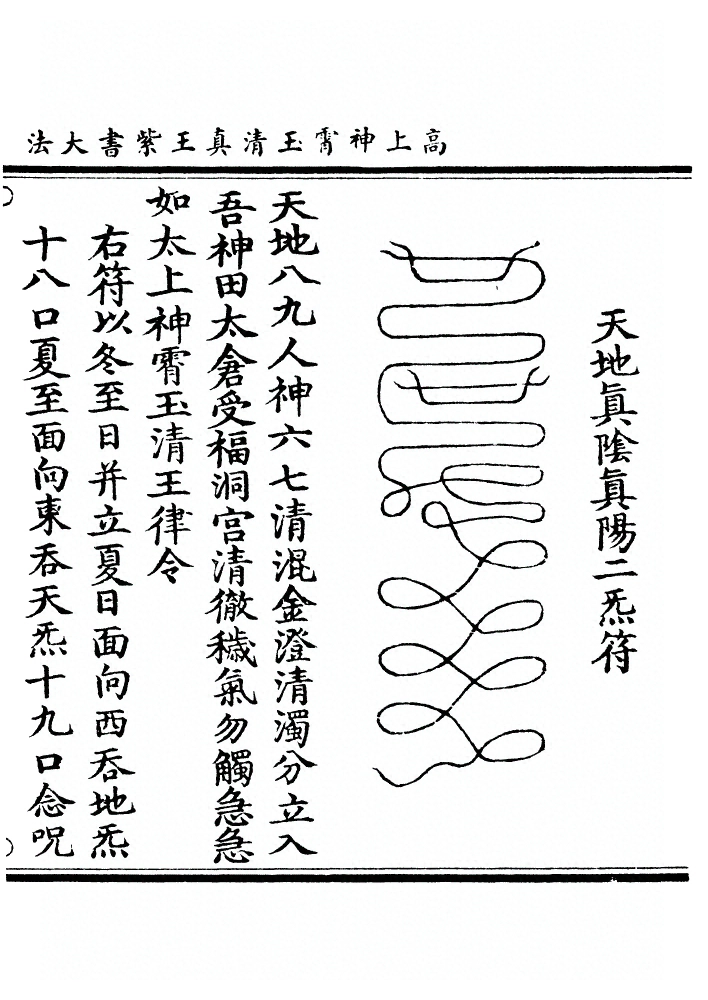 高上神霄玉清真王紫書大法
天地眞陰眞陽二炁符
天地八九人神六七清混金澄清濁分立入
吾神田太倉受福洞宫清徹穢氣勿觸急急
如太上神霄玉清王律令
右符以冬至日并立夏日面向西吞地炁
十八口夏至面向東吞天炁十九口念呪